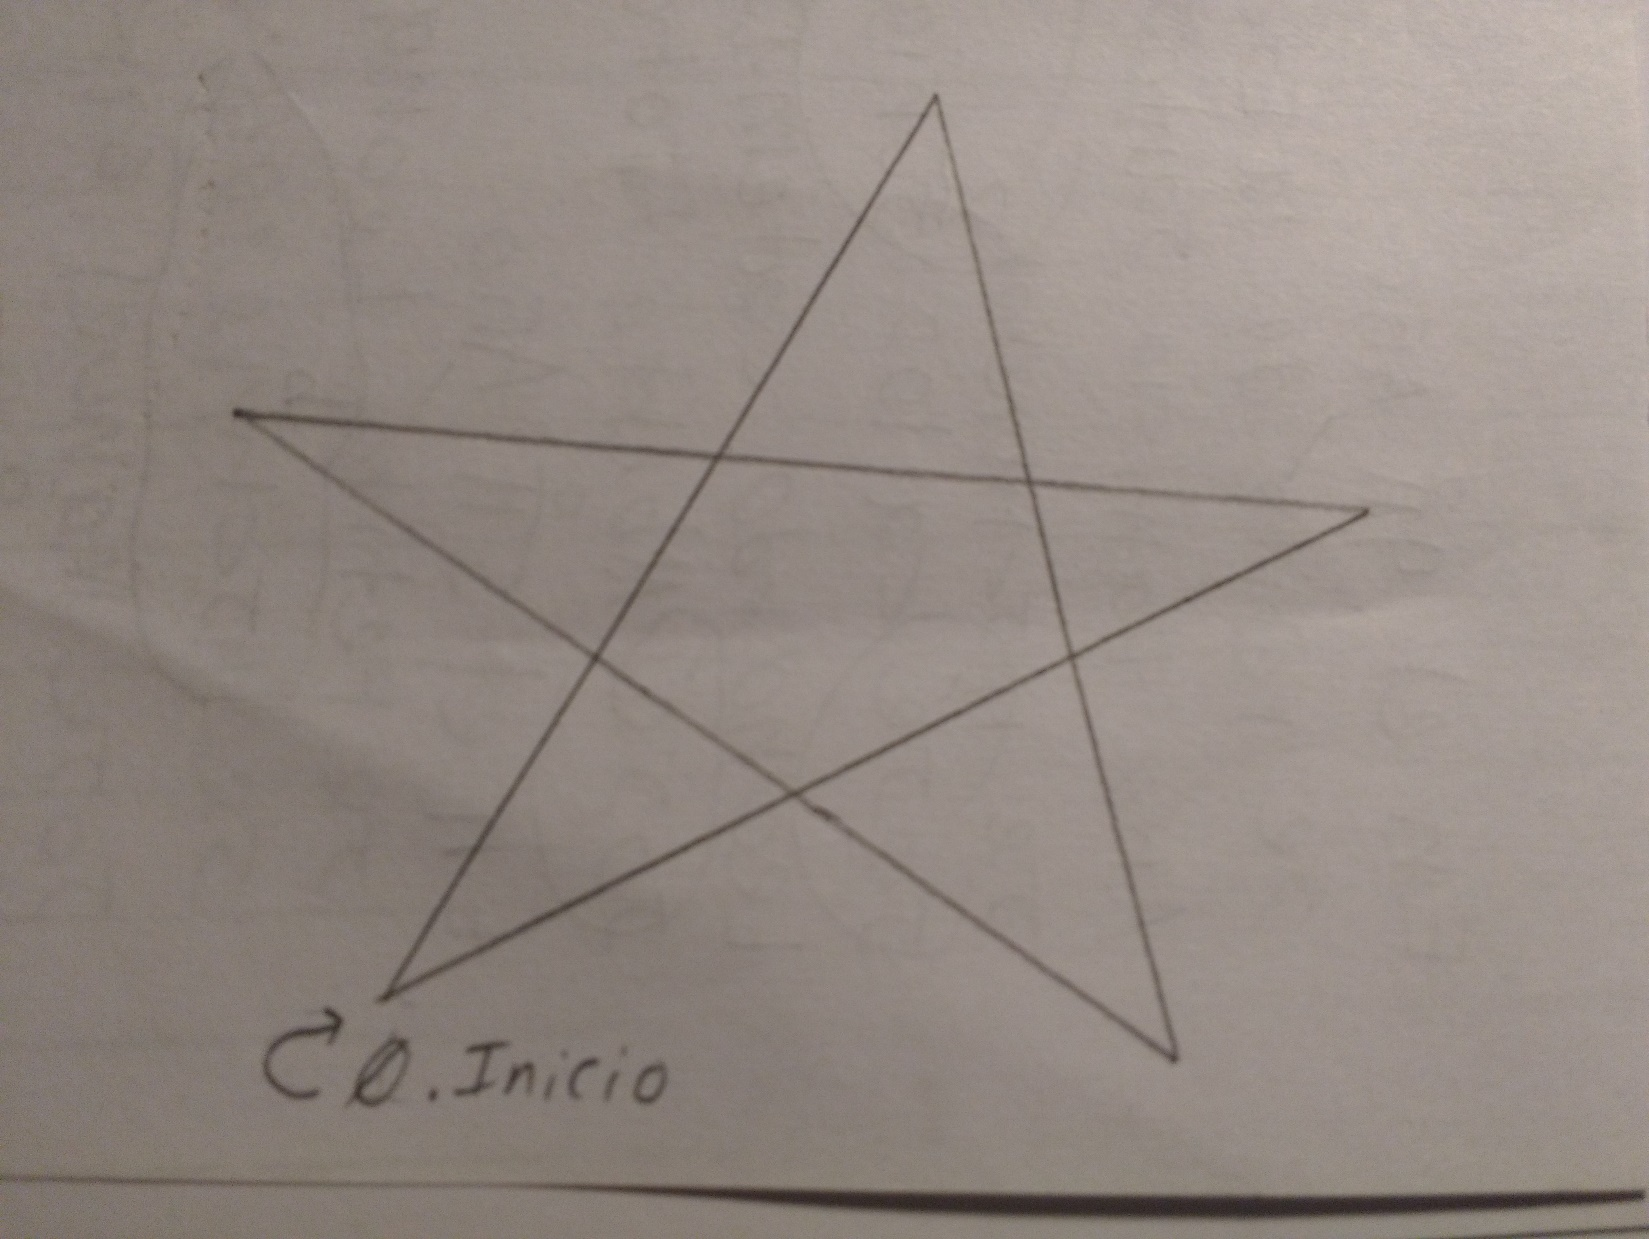 0. Inicio